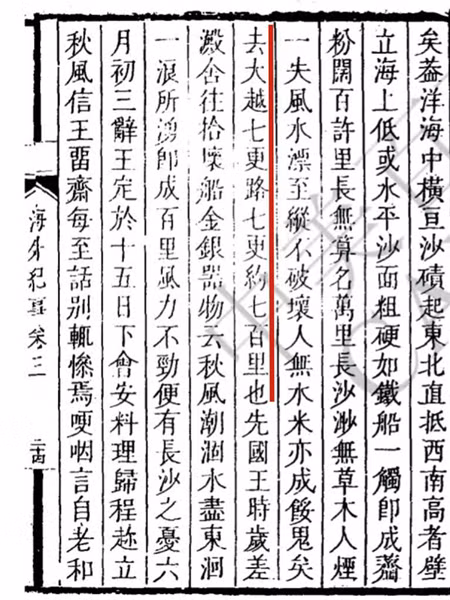 矣葢洋海中橫亘沙磧起東北直抵西南高者壁
立海上低或水平沙面粗硬如鐵船一觸卽成虀
粉闊百許里長無算名萬里長沙渺無草木人煙
一失風水漂至縱不破壞人無水米亦成餒鬼矣
去大越七更路七更約七百里也先國王時歲差
澱舍往拾壞船金銀器物云秋風潮涸水盡東洄
一浪所湧卽成百里風力不勁便有長沙之憂六
月初三辭王定於十五日下會安料理歸程趂立
秋風信王畱齋每至話别輒慘焉哽咽言自老和
海外紀事卷三
中美百
CA